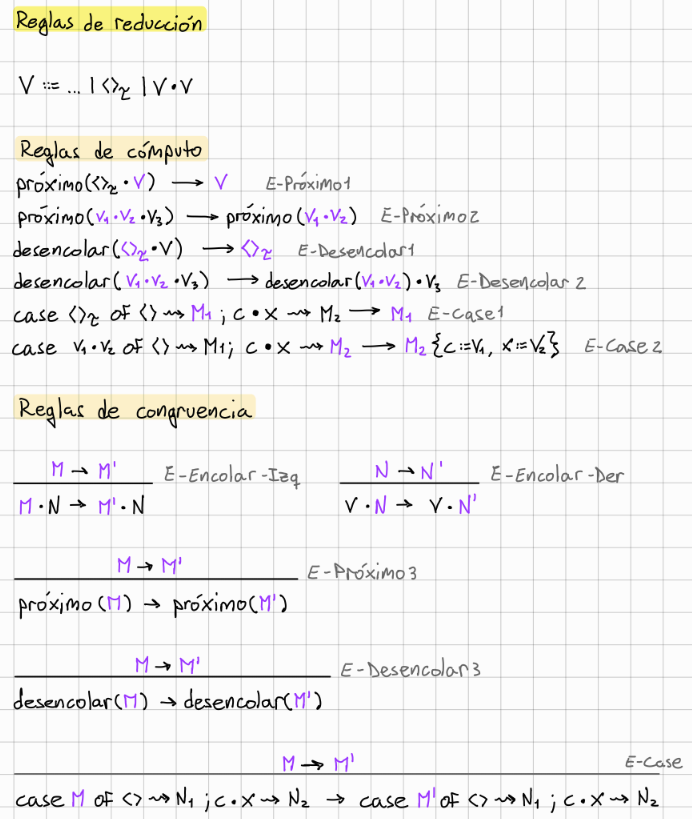 Reglas de reducción
V ::= ... | <>τ | V • V
Reglas de cómputo
próximo(<>τ • V) → V E-Próximo1
próximo(V₁ • V₂ • V₃) → próximo(V₁ • V₂) E-Próximo2
desencolar(<>τ • V) → <>τ E-Desencolar1
desencolar(V₁ • V₂ • V₃) → desencolar(V₁ • V₂) • V₃ E-Desencolar 2
case <>τ of <> ⇝ M₁ ; c • x ⇝ M₂ → M₁ E-Case1
case V₁ • V₂ of <> ⇝ M₁; c • x ⇝ M₂ → M₂ {c := V₁, x := V₂} E-Case2
Reglas de congruencia
M → M' E-Encolar-Izq N → N' E-Encolar-Der
M • N → M' • N V • N → V • N'
M → M' E-Próximo3
próximo(M) → próximo(M')
M → M' E-Desencolar3
desencolar(M) → desencolar(M')
M → M' E-Case
case M of <> ⇝ N₁ ; c • x ⇝ N₂ → case M' of <> ⇝ N₁ ; c • x ⇝ N₂